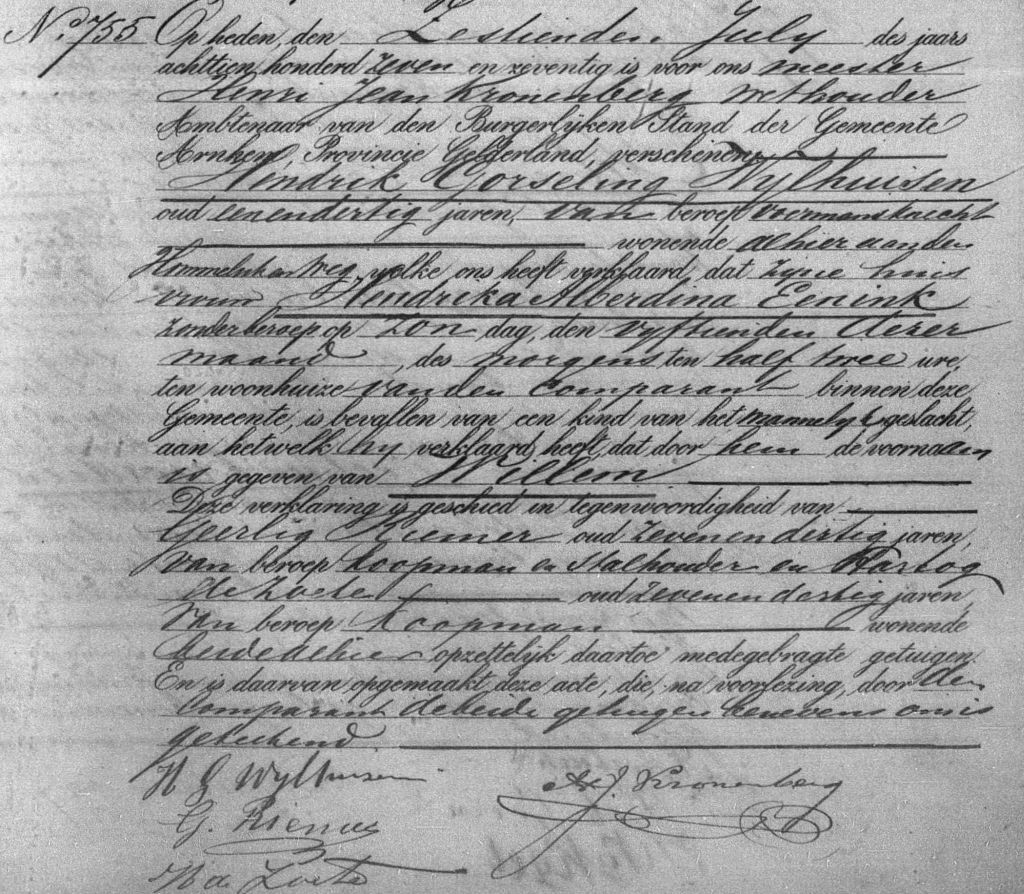 No. 755 Op heden, den Zestienden July des jaars
achttien honderd zeven en zeventig is voor ons meester
Henri Jean Kronenberg Wethouder
Ambtenaar van den Burgerlijken Stand der Gemeente
Arnhem, Provincie Gelderland, verschenen
Hendrik Gorseling Wylhuisen
oud eenendertig jaren, van beroep voermansknecht
wonende alhier aan den
Hommelschen weg, welke ons heeft verklaard, dat zyne huis
vrouw Hendrika Alberdina Eenink
zonder beroep op Zon dag, den vyftienden dezer
maand, des morgens ten half twee ure,
ten woonhuize van den Comparant binnen deze
Gemeente, is bevallen van een kind van het mannelyk geslacht,
aan hetwelk hy verklaard heeft, dat door hem de voornaam
is gegeven van Willem
Deze verklaring is geschied in tegenwoordigheid van
Geerlig Riemer oud zevenendertig jaren,
van beroep koopman en Stalhouder en Hartog
de Zoete oud zevenendertig jaren,
van beroep Koopman wonende
beide alhier opzettelijk daartoe medegebragte getuigen.
En is daarvan opgemaakt deze acte, die, na voorlezing, door den
Comparant de beide getuigen benevens ons is
geteekend.
H G Wylhuisen
H. J. Kronenberg
G. Riemer
H de Zoete